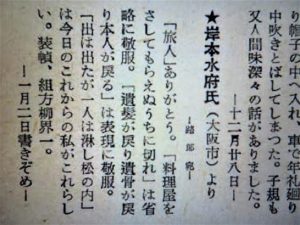 り帽子の中へ入れ、車で年礼廻り
中吹きとばしてしまつた。子規も
又人間味深々の話がありました。
―十二月廿八日―
★岸本水府氏（大阪市）より
―路郎宛―
「旅人」ありがとう。「料理屋を
さしてもらえぬうちに切れ」は省
略に敬服。「遺髪が戻り遺骨が戻
り本人が戻る」は表現に敬服。
「出は出たが一人は淋し松の内」
は今日のこれからの私がこれらし
い。装幀、組方柳界一。
―一月二日書きぞめ―